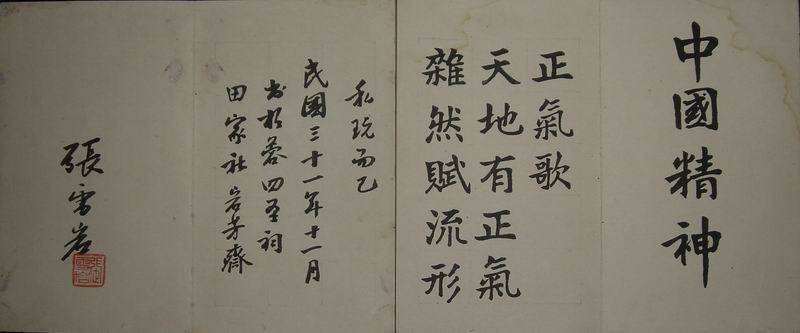 中國精神
正氣歌
天地有正氣
雜然賦流形
私玩而已
民國三十一年十一月
書於蓉四聖祠
田家社岩芳齋
張雪岩